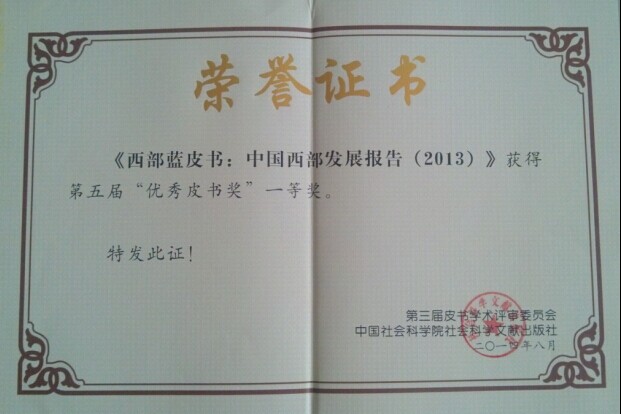 荣誉证书
《西部蓝皮书：中国西部发展报告（2013）》获得
第五届“优秀皮书奖”一等奖。
特发此证！
第三届皮书学术评审委员会
中国社会科学院社会科学文献出版社
二〇一四年八月